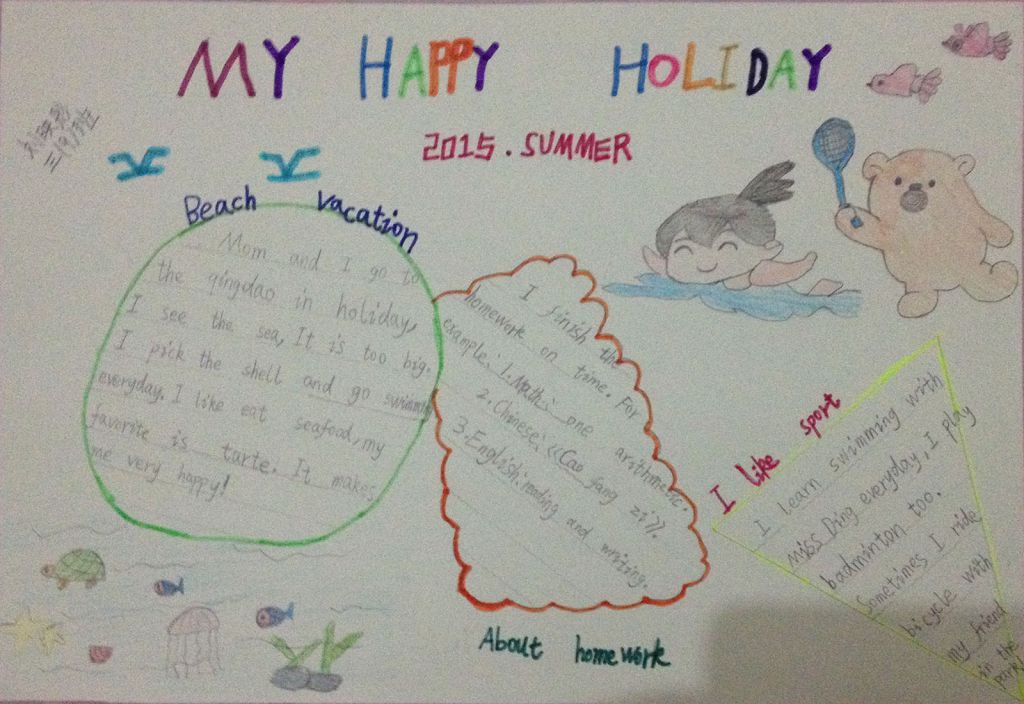 MY HAPPY HOLIDAY
2015. SUMMER
三(9)班
Beach vacation
Mom and I go to
the qingdao in holiday,
I see the sea, It is too big.
I pick the shell and go swimming
everyday. I like eat seafood, my
favorite is tarte. It makes
me very happy!
I finish the
homework on time. For
example: 1. Math: one arithmetic.
2. Chinese: 《Cao fang zi》.
3. English: reading and writing.
About homework
I like sport
I learn swimming with
Miss Ding everyday, I play
badminton too.
Sometimes I ride
bicycle with
my friend
in the
park!